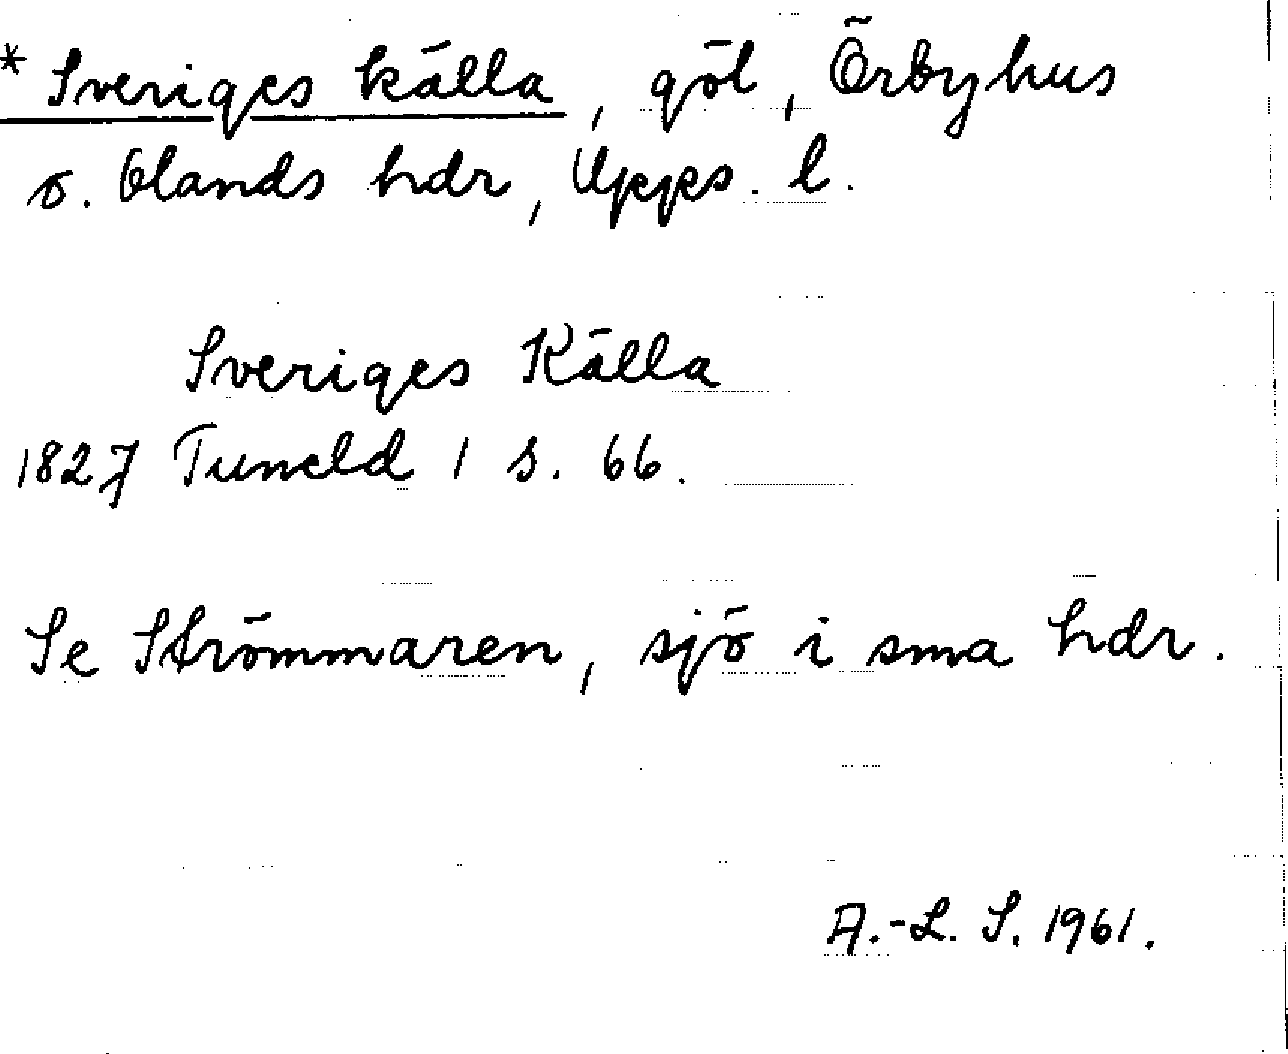 * Sveriges källa, göl, Örbyhus
o. Olands hdr, Upps. l.
Sveriges Källa
1827 Tuneld 1 s. 66.
Se Strömmaren, sjö i sma hdr.
A.-L. S. 1961.